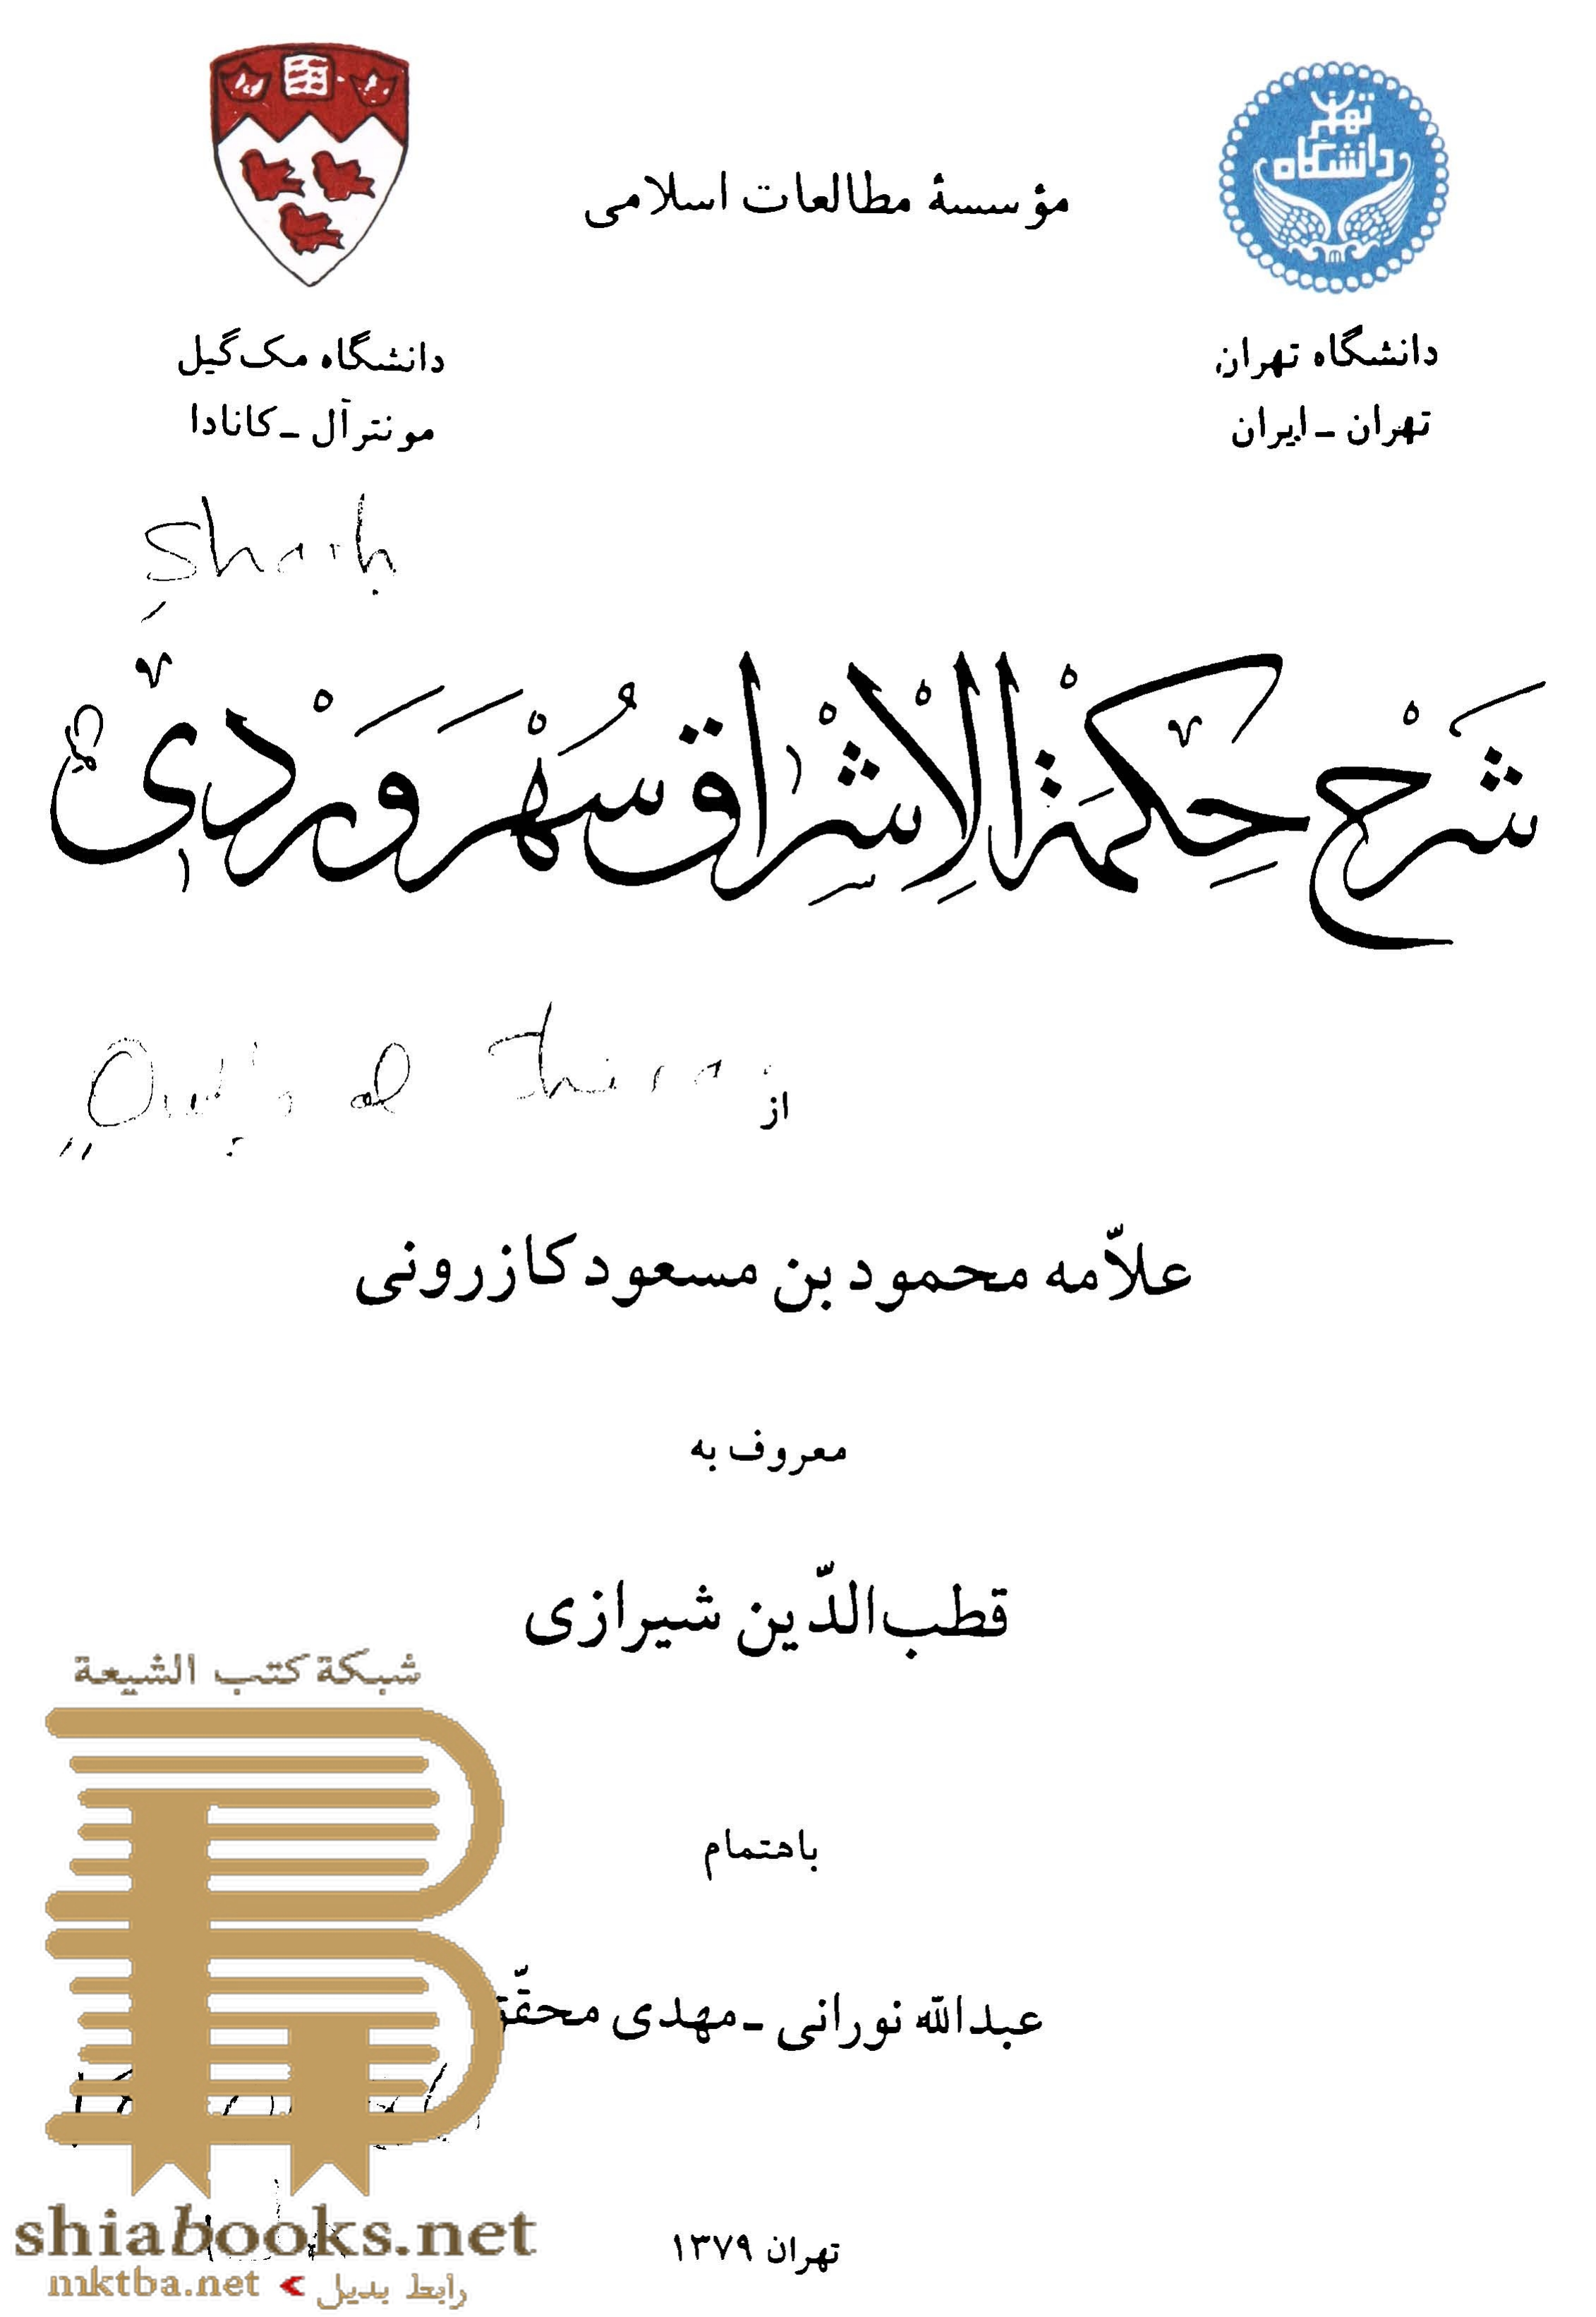 تهران
دانشگاه
مؤسسهٔ مطالعات اسلامی
دانشگاه تهران
تهران ـ ایران
دانشگاه مک‌گیل
مونترآل ـ کانادا
Sharh
شَرْحِ حِکْمَةُ الْاِشْراقِ سُهْرَوَرْدی
از
علاّمه محمود بن مسعود کازرونی
معروف به
قطب‌الدّین شیرازی
باهتمام
عبدالله نورانی ـ مهدی محقّق
تهران ۱۳۷۹
شبكة كتب الشيعة
shiabooks.net
mktba.net < رابط بديل